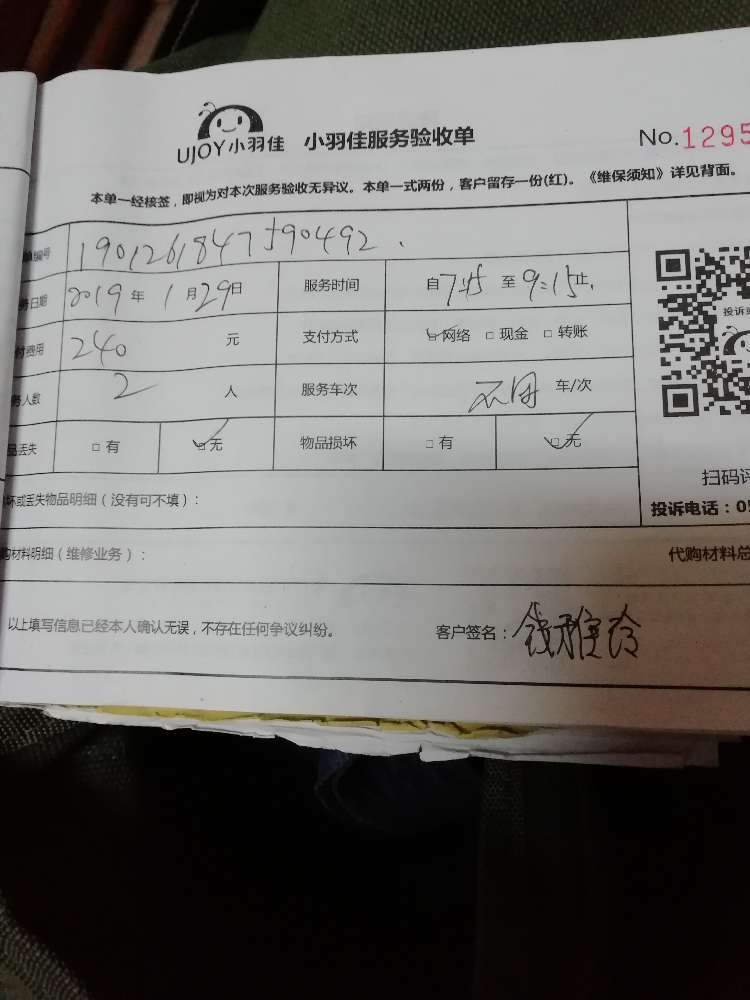 UJOY小羽佳 小羽佳服务验收单 No.1295
本单一经核签，即视为对本次服务验收无异议。本单一式两份，客户留存一份(红)。《维保须知》详见背面。
单编号 1901261847590492.
务日期 2019年1月29日 服务时间 自7:45至9:15止
付费用 240元 支付方式 网络 现金 转账
务人数 2人 服务车次 车/次
品丢失 有 无 物品损坏 有 无
投诉
扫码评
坏或丢失物品明细（没有可不填）：
投诉电话：05
购材料明细（维修业务）：
代购材料总
以上填写信息已经本人确认无误，不存在任何争议纠纷。 客户签名：钱雅玲